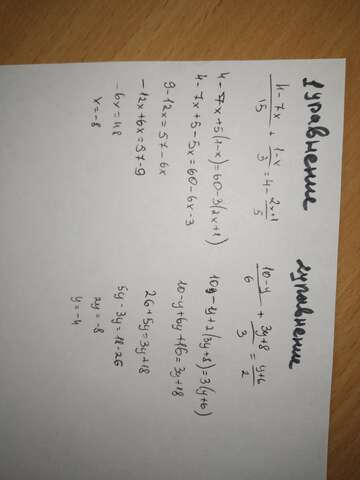 1 уравнение
4-7x/15 + 1-x/3 = 4 - 2x+1/5
4-7x+5(1-x)=60-3(2x+1)
4-7x+5-5x=60-6x-3
9-12x=57-6x
-12x+6x=57-9
-6x=48
x=-8
2 уравнение
10-y/6 + 3y+8/3 = y+6/2
10y-y+2(3y+8)=3(y+6)
10-y+6y+16=3y+18
26+5y=3y+18
5y-3y=18-26
2y=-8
y=-4